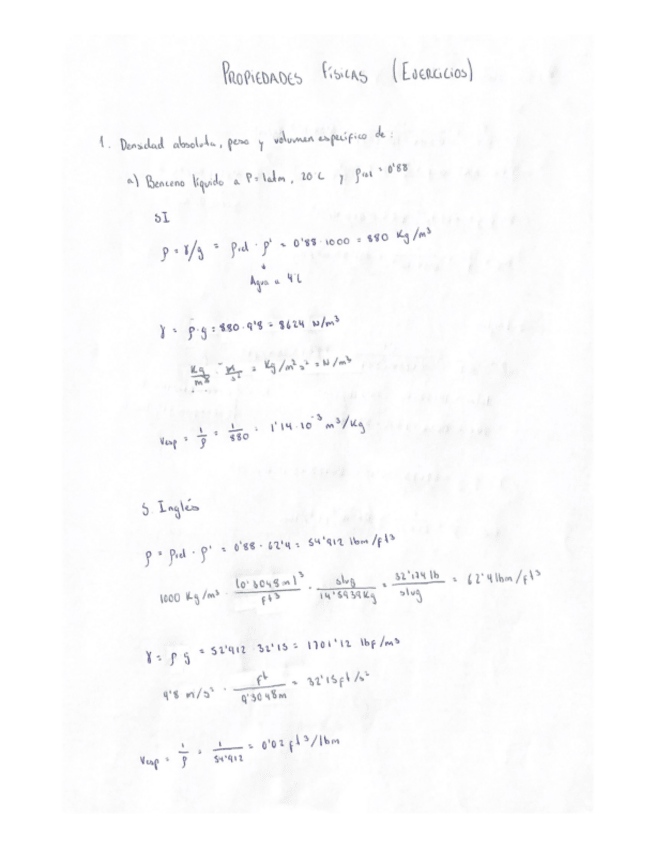 PROPIEDADES FÍSICAS (EJERCICIOS)
1. Densidad absoluta, peso y volumen específico de:
a) Benceno líquido a P=1atm, 20 L y ρrel = 0'88
SI
ρ = γ/g = ρrel · ρ' = 0'88·1000 = 880 Kg/m³
↓
Agua a 4ºC
γ = ρ·g = 880·9'8 = 8624 N/m³
Kg/m³ · m/s² = Kg/m²s² = N/m³
Vesp = 1/ρ = 1/880 = 1'14·10⁻³ m³/Kg
S. Inglés
ρ = ρrel · ρ' = 0'88 · 62'4 = 54'912 lbm/ft³
1000 Kg/m³ · (0'3048m)³/ft³ · slug/14'5939Kg = 32'174 lb/slug = 62'4 lbm/ft³
γ = ρ g = 52'912 · 32'15 = 1701'12 lbf/m³
9'8 m/s² · ft/0'3048m = 32'15 ft/s²
Vesp = 1/ρ = 1/54'912 = 0'02 ft³/lbm